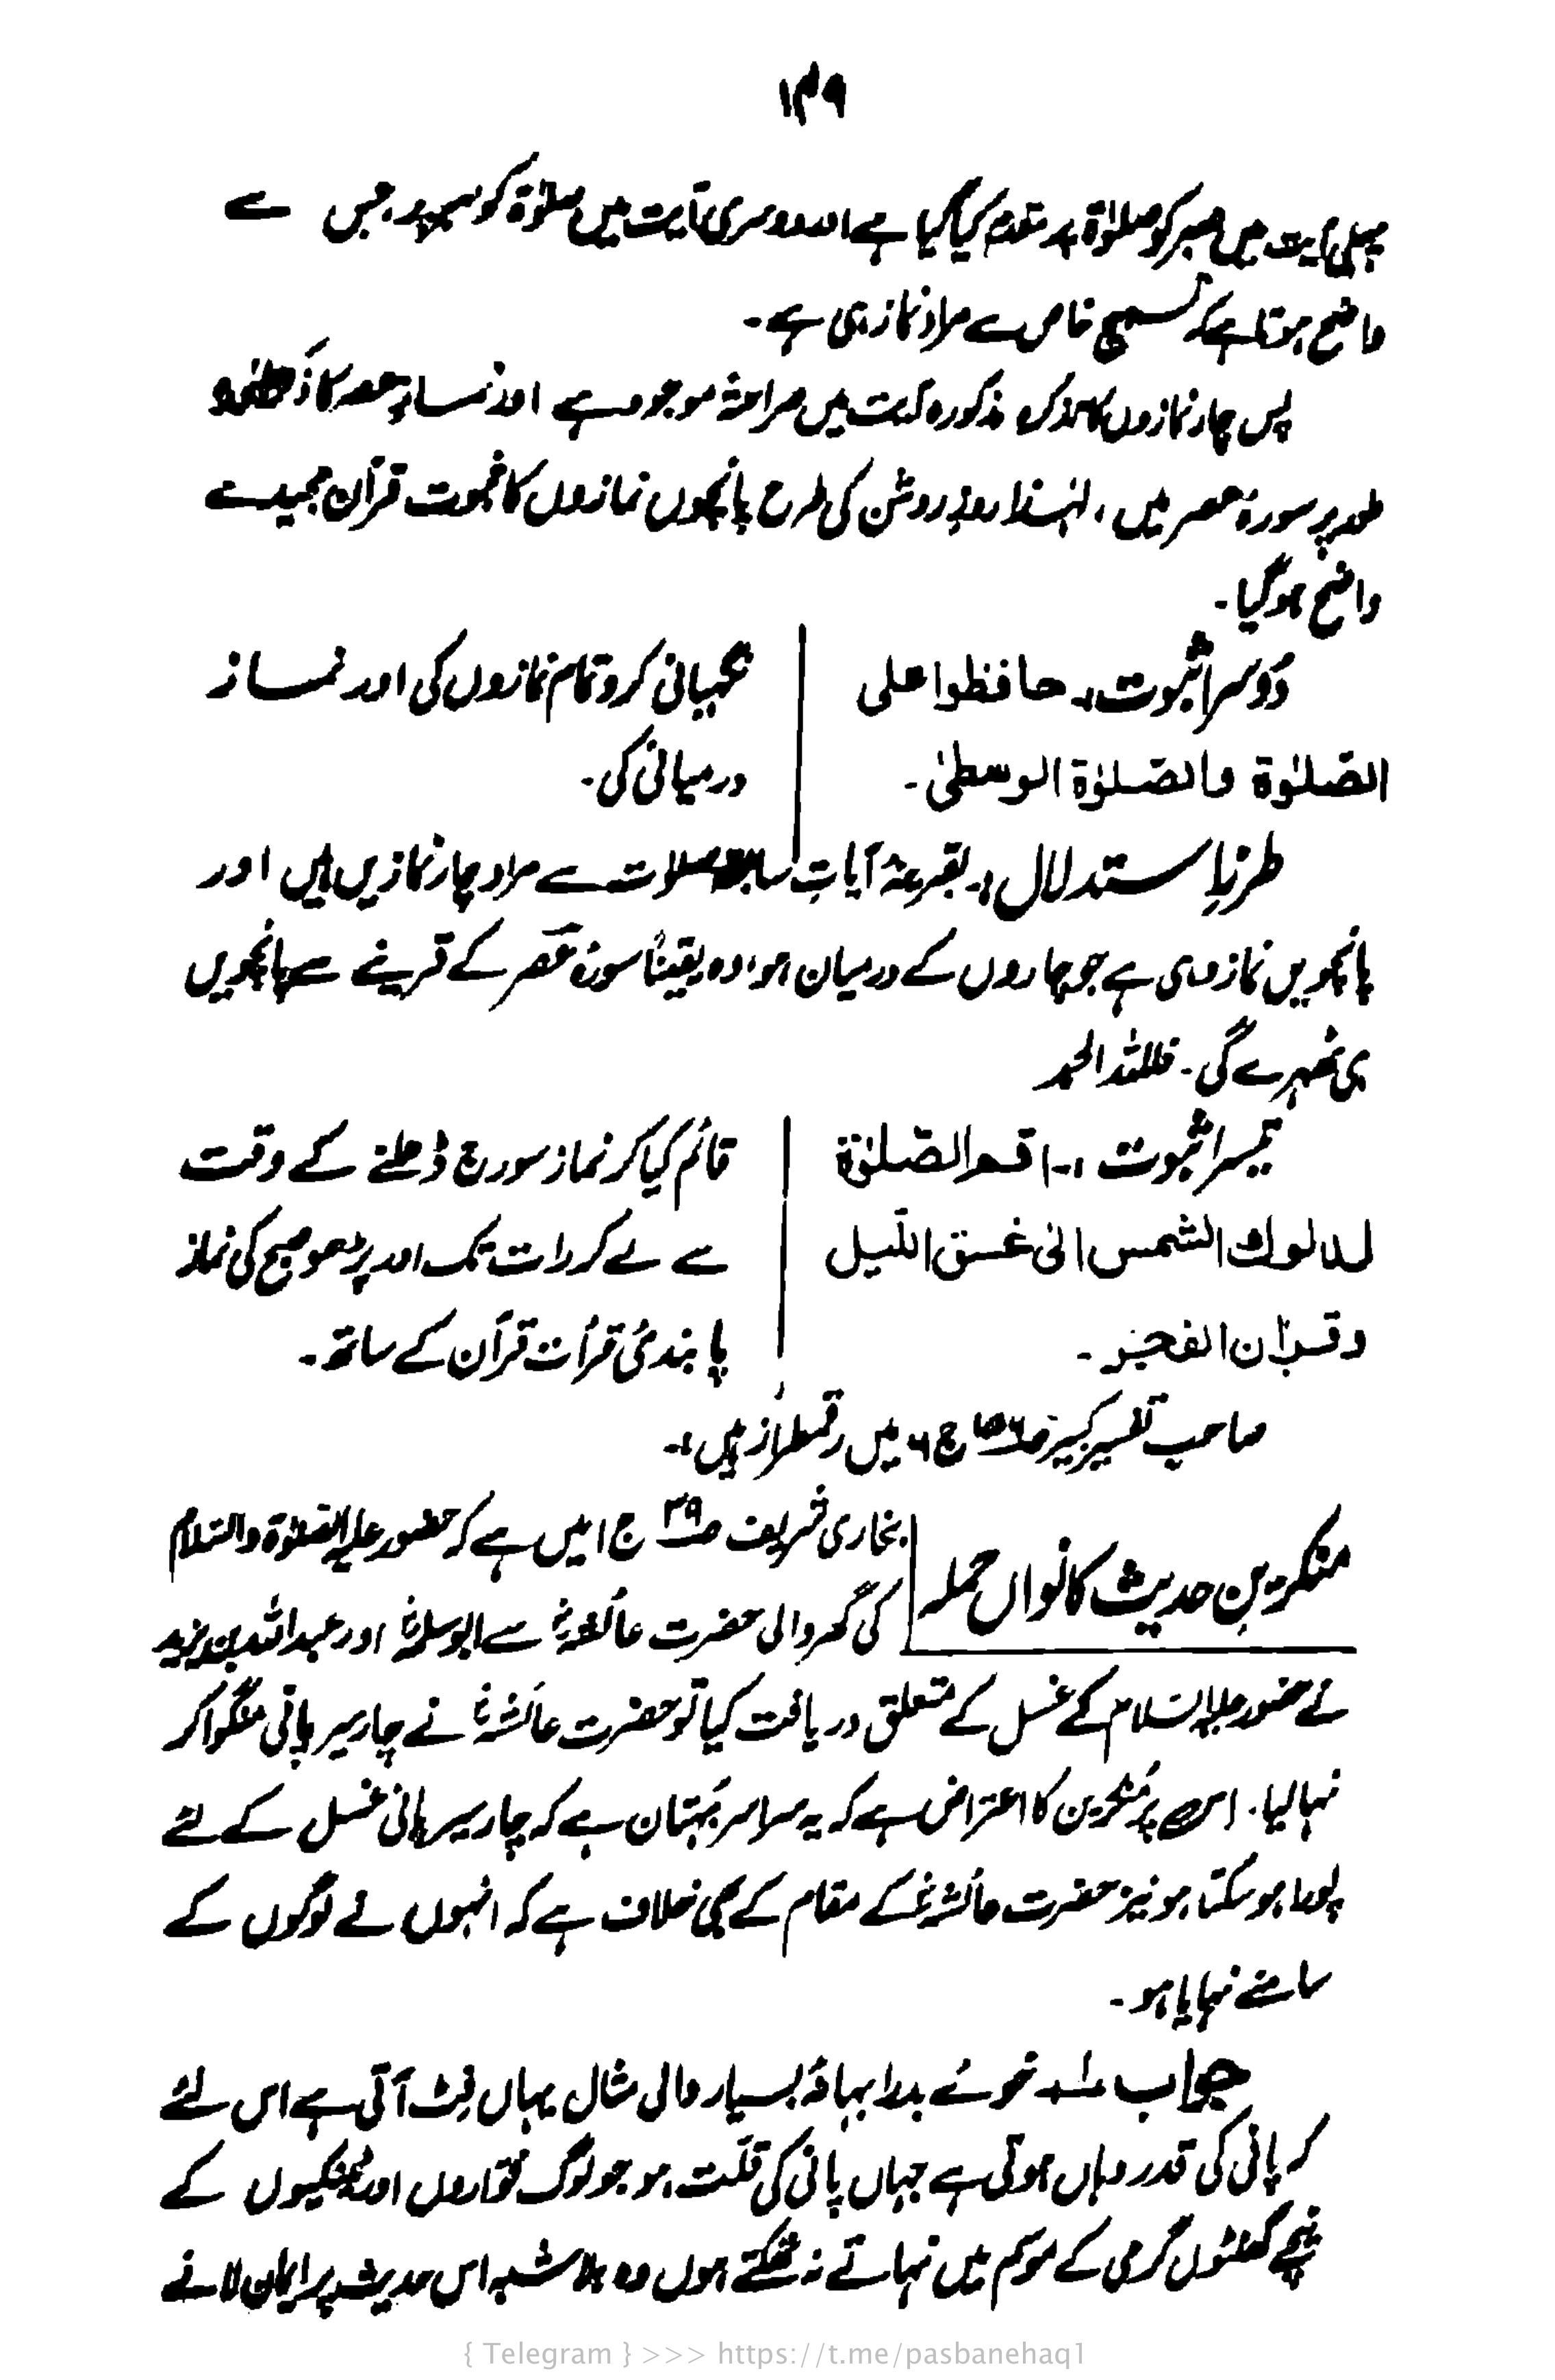 ۱۴۹
پہلی آیت میں صبر کو صلوٰۃ پر مقدم کیا گیا ہے اور دوسری آیت میں صلوٰۃ کو صبر پر، جس سے
واضح ہوتا ہے کہ تسبیح خاص سے مراد نماز ہی ہے۔
پس چار نمازوں کا ذکر مذکورہ آیت میں صراحۃً موجود ہے اور نماز عصر کا ذکر
طور پر سورۂ عصر میں، لہٰذا روز روشن کی طرح پانچوں نمازوں کا ثبوت قرآن مجید سے
واضح ہوگیا۔
دوسرا ثبوت :۔ حافظوا علی
الصّلوٰۃ والصّلوٰۃ الوسطیٰ۔
نگہبانی کرو تمام نمازوں کی اور نماز
درمیانی کی۔
طرزِ استدلال :۔ بقرینۂ آیاتِ سابقہ صلوات سے مراد چار نمازیں ہیں اور
پانچویں نماز وہی ہے جو چاروں کے درمیان ہو، وہ یقیناً سورۂ عصر کے قرینے سے پانچویں
ہی ٹھہرے گی۔ فللّٰہ الحمد
تیسرا ثبوت :۔ اقم الصّلوٰۃ
لدلوك الشمس الیٰ غسق اللّیل
وقراٰن الفجر۔
قائم کیا کر نماز سورج ڈھلنے کے وقت
سے لے کر رات تک اور پڑھو صبح کی نماز
پابندیٔ قرأت قرآن کے ساتھ۔
صاحب تفسیر کبیر ج ۶ میں رقمطراز ہیں :۔
منکرینِ حدیث کا نواں حملہ
بخاری شریف ص۳۹ ج ا میں ہے کہ حضور علیہ الصّلوٰۃ والسّلام
کی گھر والی حضرت عائشہؓ سے ابوسلمہؓ اور عبداللہ بن یزید
نے حضور علیہ السّلام کے غسل کے متعلق دریافت کیا تو حضرت عائشہؓ نے چار سیر پانی منگوا کر
نہا لیا۔ اس پر منکرین کا اعتراض ہے کہ یہ سراسر بہتان ہے کہ چار سیر پانی غسل کے لئے
پورا ہو سکتا ہو نیز حضرت عائشہؓ کے مقام کے بھی خلاف ہے کہ انہوں نے لوگوں کے
سامنے نہایا ہو۔
جواب ۱؎ خوئے بدرا بہانۂ بسیار والی مثال یہاں فٹ آتی ہے اس لئے
کہ پانی کی قدر وہاں ہوتی ہے جہاں پانی کی قلّت ہو جو لوگ فوّاروں اور ٹینکیوں کے
نیچے گھنٹوں گرمی کے موسم میں نہاتے نہ تھکتے ہوں وہ بلاشبہ اس حدیث پر ایمان لانے
{ Telegram } >>> https://t.me/pasbanehaq1